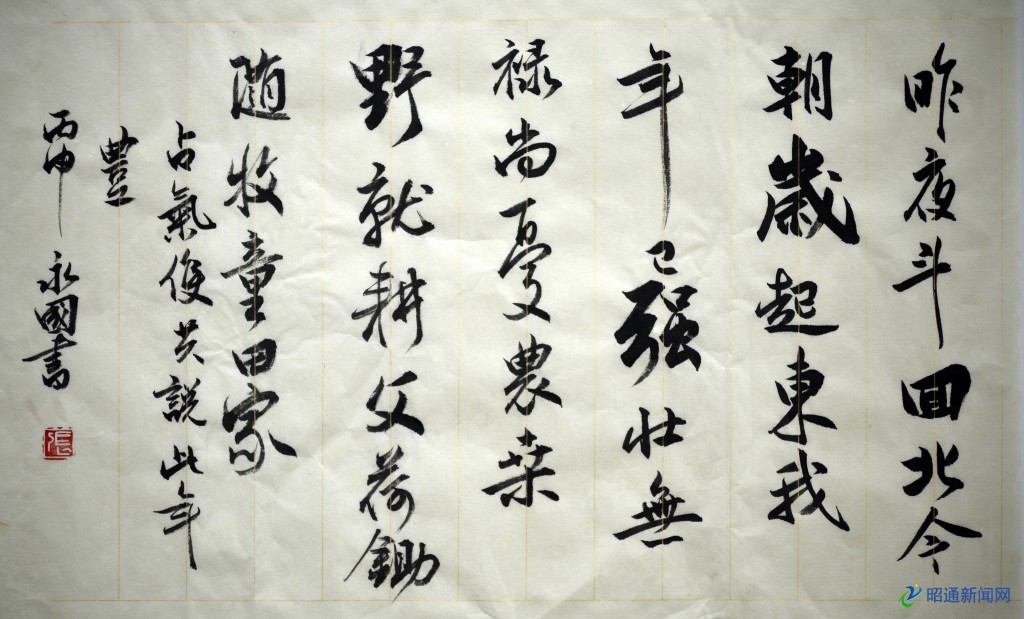 昨夜斗囬北今
朝歲起東我
年已强壮無
禄尚憂農桒
野就耕父荷鋤
随牧童田家
占氣候共說此年
豐
丙申 永國書
張
昭通新闻网